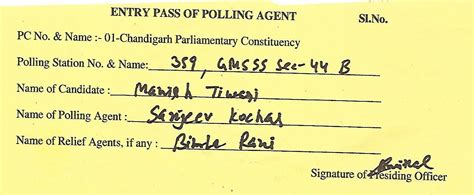 ENTRY PASS OF POLLING AGENT Sl.No.
PC No. & Name :- 01-Chandigarh Parliamentary Constituency
Polling Station No. & Name: 359, GMSSS Sec-44 B
Name of Candidate : Manish Tiwari
Name of Polling Agent : Sanjeev Kochar
Name of Relief Agents, if any : Bimla Rani
Signature of Presiding Officer